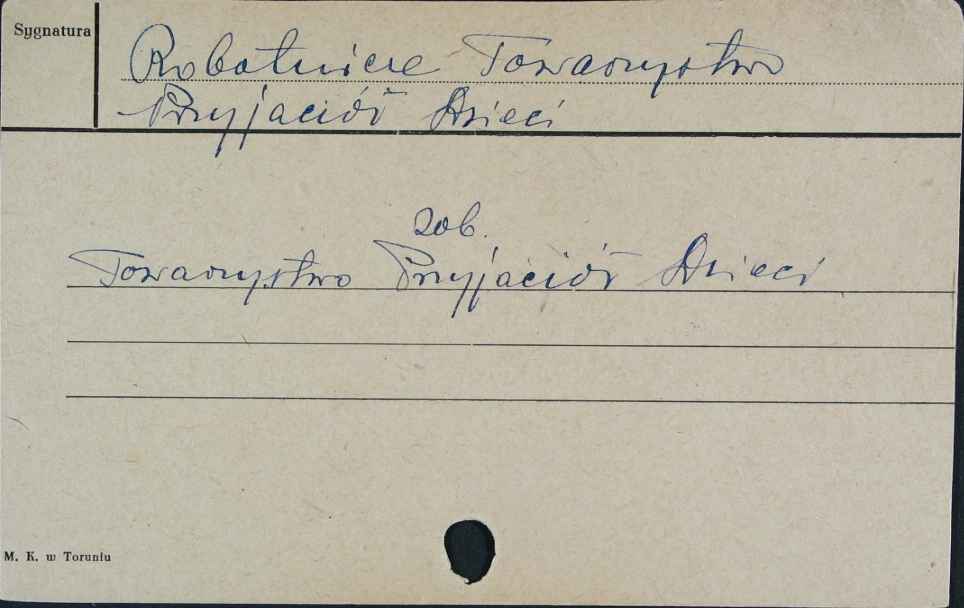 Sygnatura
Robotnicze Towarzystwo
Przyjaciół Dzieci
zob.
Towarzystwo Przyjaciół Dzieci
M. K. w Toruniu